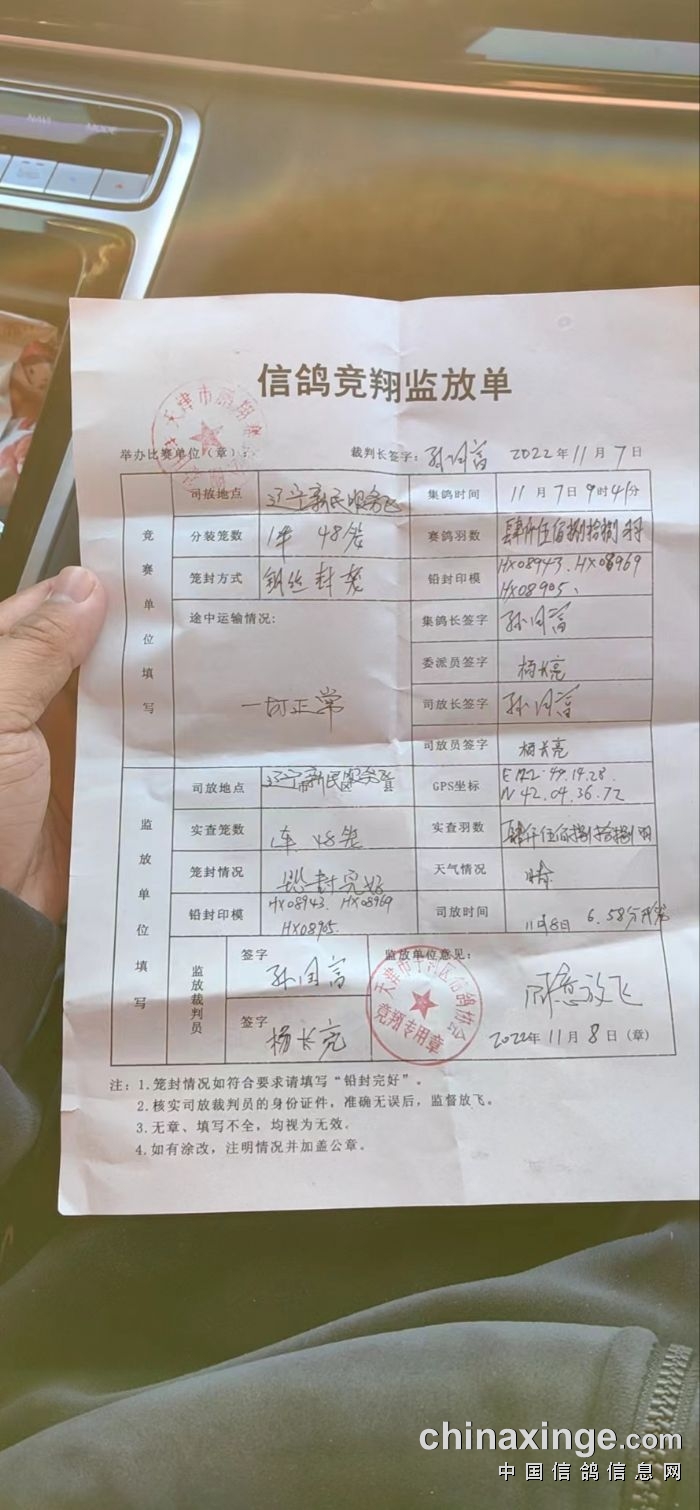 NAVI
信鸽竞翔监放单
举办比赛单位(章): 裁判长签字: 2022年11月7日
竞赛单位填写
司放地点 辽宁新民服务区 集鸽时间 11月7日9时41分
分装笼数 1车 48笼 赛鸽羽数 肆仟伍佰捌拾捌羽
笼封方式 铅印模 HX08943. HX08969
HX08905、
途中运输情况: 一切正常
集鸽长签字
委派员签字 杨长亮
司放长签字
司放员签字 杨长亮
监放单位填写
司放地点 辽宁市新民区服务区县 GPS坐标 E122.49.14.28.
N 42.04.36.72
实查笼数 1车 48笼 实查羽数 肆仟伍佰捌拾捌羽
笼封情况 铅封完好 天气情况 晴
铅封印模 HX08943. HX08969
HX08905. 司放时间 11月8日 6.58分
监放裁判员
签字
签字 杨长亮
监放单位意见: 同意放飞
竞翔专用章
2022年11月8日(章)
注: 1.笼封情况如符合要求请填写“铅封完好”。
2.核实司放裁判员的身份证件,准确无误后,监督放飞。
3.无章、填写不全,均视为无效。
4.如有涂改,注明情况并加盖公章。
chinaxinge.com
中国信鸽信息网